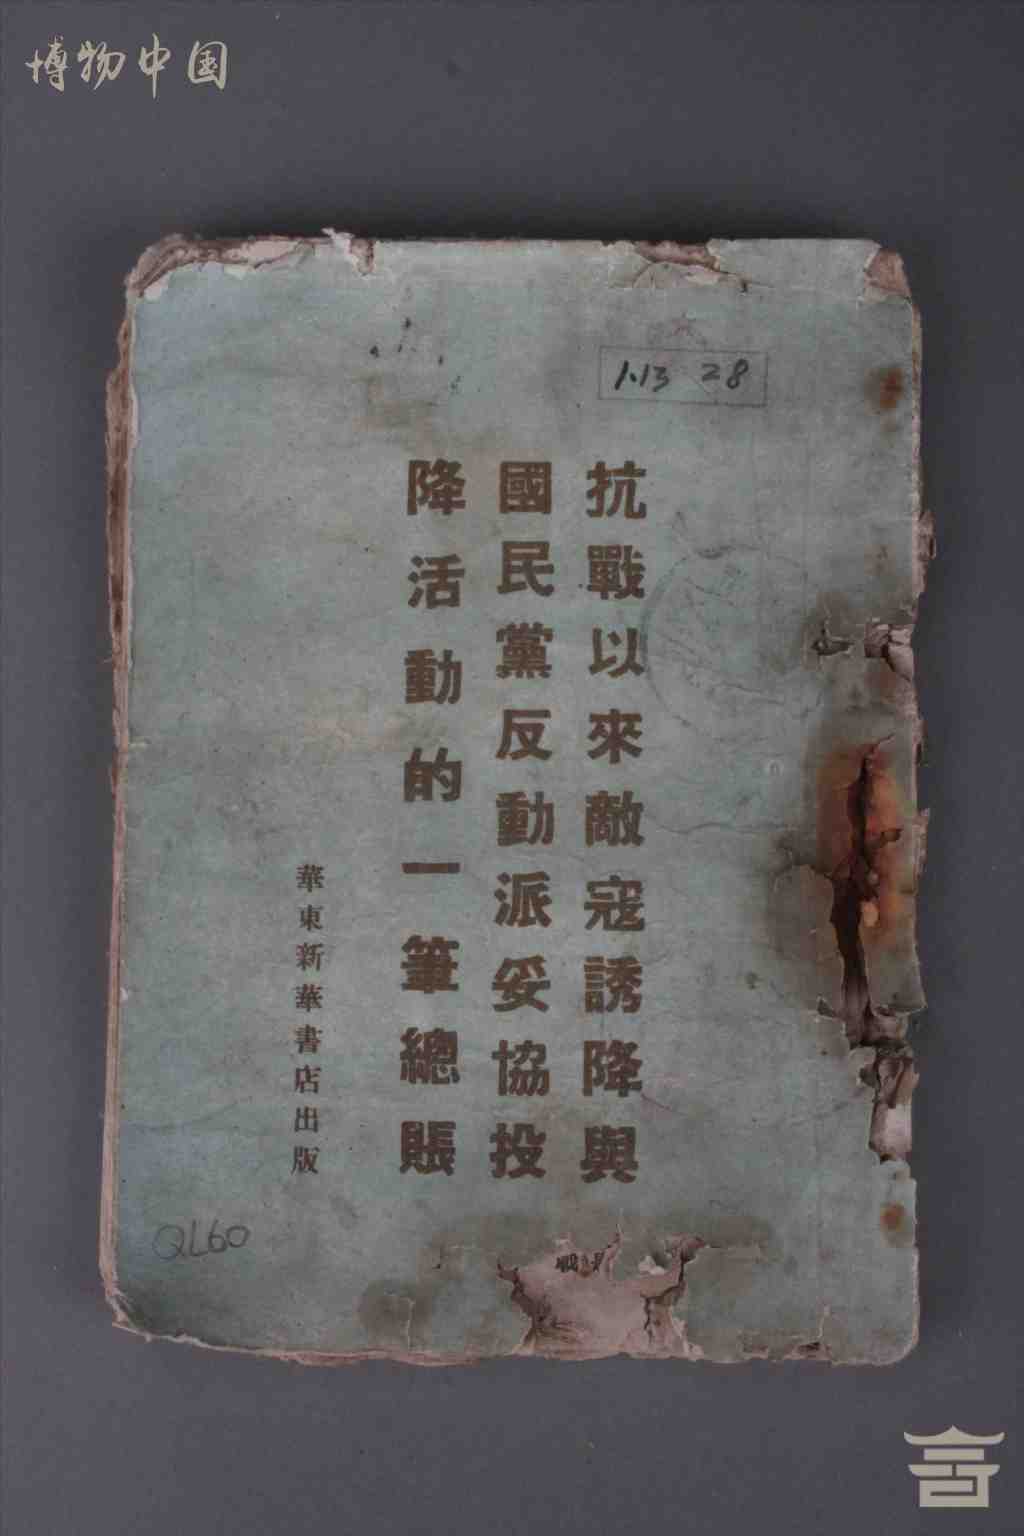 博物中国
1.13 28
抗戰以來敵寇誘降與
國民黨反動派妥協投
降活動的一筆總賬
華東新華書店出版
QL60
戰